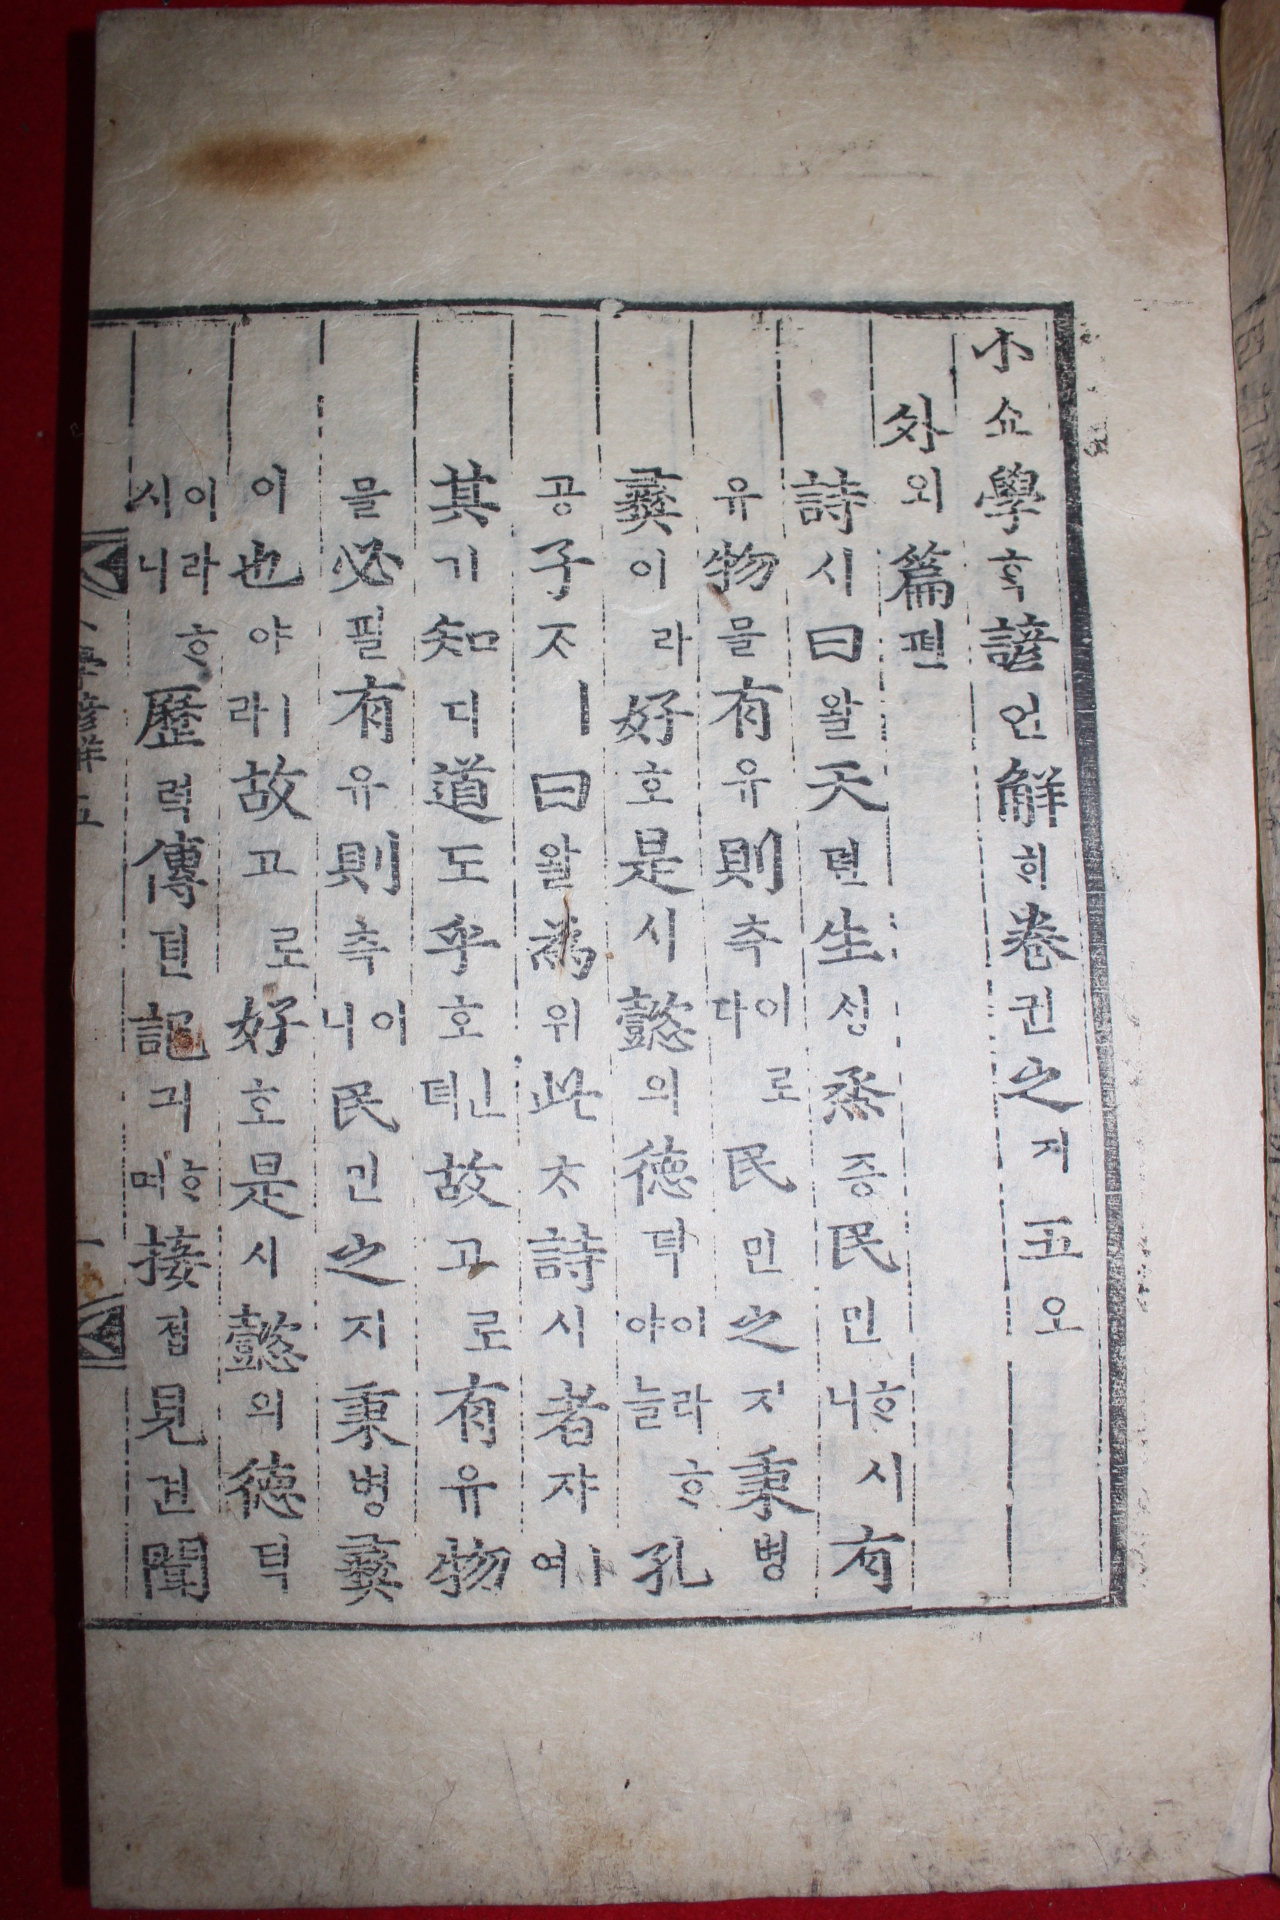 小쇼學ᄒᆞᆨ諺언解ᄒᆡ卷권之지五오
外외篇편
詩시曰왈天텬生ᄉᆡᆼ烝증民민ᄒᆞ시니有
유物믈有유則측이로다民민之지秉병
彛이라好호是시懿의德덕이라ᄒᆞ야늘孔
공子ᄌᆞㅣ曰왈爲위此ᄎᆞ詩시者쟈ㅣ여
其기知디道도乎호ㅣㄴ뎌故고로有유物
믈必필有유則측이니民민之지秉병彛
이也야ㅣ라故고로好호是시懿의德덕
이라ᄒᆞ시니歷력傳뎐記긔ᄒᆞ며接졉見견聞
學諺解五 一